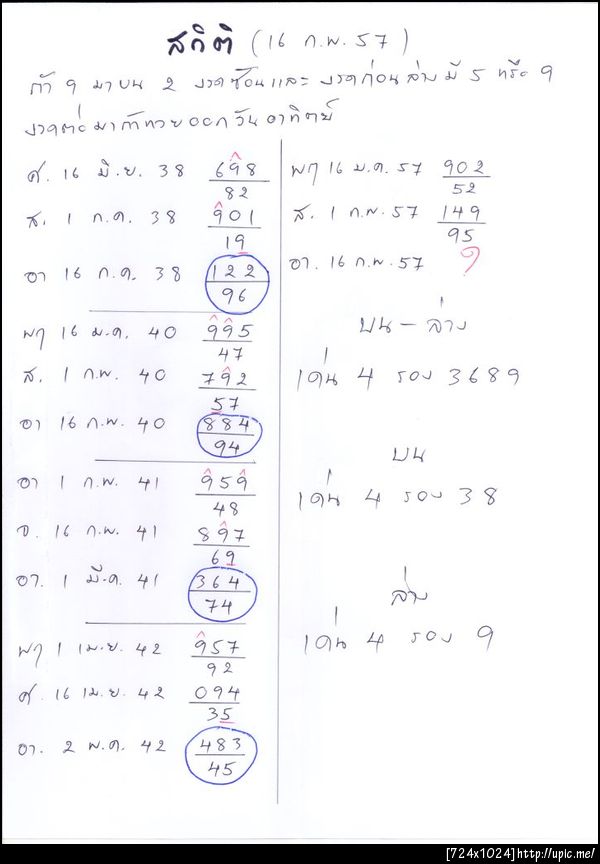 สถิติ (16 ก.พ. 57)
ถ้า 9 มาบน 2 งวดซ้อนและ งวดก่อนล่างมี 5 หรือ 9
งวดต่อมาถ้าหวยออกวันอาทิตย์
ศ. 16 มิ.ย. 38 698
82
ส. 1 ก.ค. 38 901
19
อา 16 ก.ค. 38 122
96
พฤ 16 ม.ค. 40 995
47
ส. 1 ก.พ. 40 792
57
อา 16 ก.พ. 40 884
94
อา 1 ก.พ. 41 959
48
จ. 16 ก.พ. 41 897
69
อา. 1 มี.ค. 41 364
74
พฤ 1 เม.ย. 42 957
92
ศ. 16 เม.ย. 42 094
35
อา. 2 พ.ค. 42 483
45
พฤ 16 ม.ค. 57 902
52
ส. 1 ก.พ. 57 149
95
อา. 16 ก.พ. 57 ?
บน - ล่าง
เด่น 4 รอง 3689
บน
เด่น 4 รอง 38
ล่าง
เด่น 4 รอง 9
[724x1024]http://upic.me/